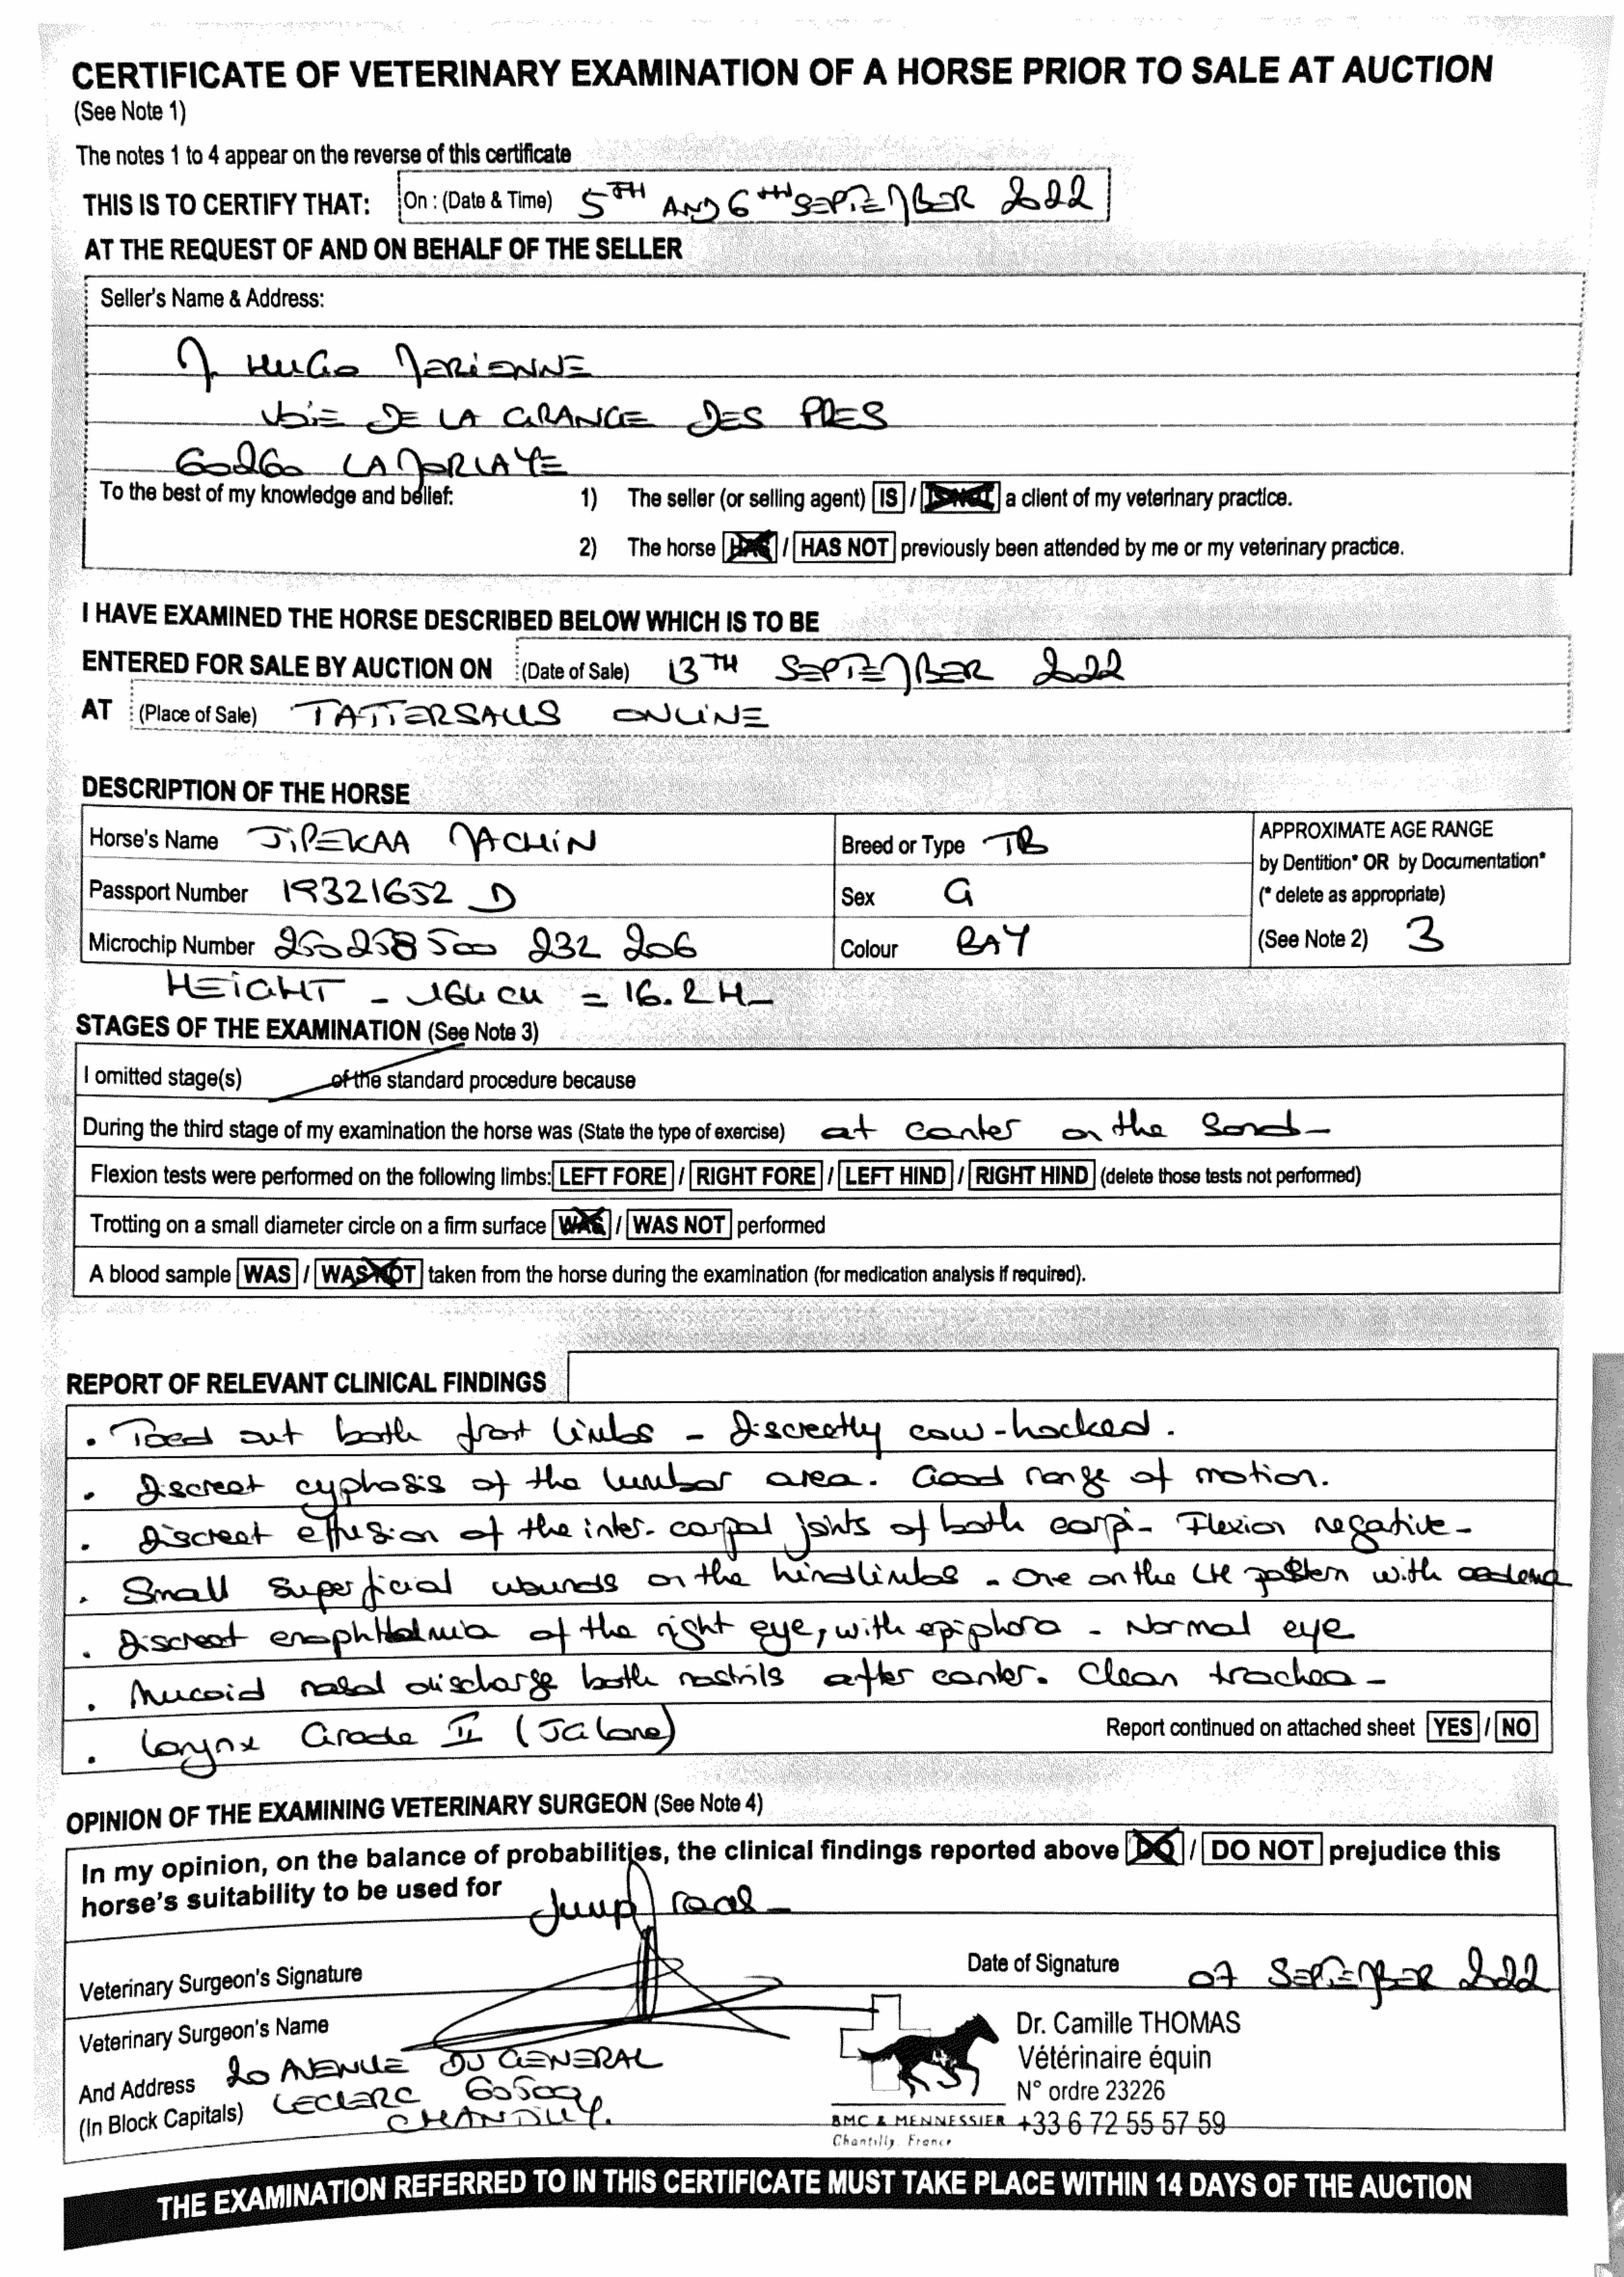 CERTIFICATE OF VETERINARY EXAMINATION OF A HORSE PRIOR TO SALE AT AUCTION
(See Note 1)
The notes 1 to 4 appear on the reverse of this certificate
THIS IS TO CERTIFY THAT: On : (Date & Time) 5TH AND 6TH SEPTEMBER 2022
AT THE REQUEST OF AND ON BEHALF OF THE SELLER
Seller's Name & Address:
M HUGO MERIENNE
VOIE DE LA GRANGE DES PRES
60260 LAMORLAYE
To the best of my knowledge and belief: 1) The seller (or selling agent) IS / IS NOT a client of my veterinary practice.
2) The horse HAS / HAS NOT previously been attended by me or my veterinary practice.
I HAVE EXAMINED THE HORSE DESCRIBED BELOW WHICH IS TO BE
ENTERED FOR SALE BY AUCTION ON (Date of Sale) 13TH SEPTEMBER 2022
AT (Place of Sale) TATTERSALLS ONLINE
DESCRIPTION OF THE HORSE
Horse's Name JIPEKAA MACHIN Breed or Type TB APPROXIMATE AGE RANGE
by Dentition* OR by Documentation*
Passport Number 19321652 D Sex G (* delete as appropriate)
Microchip Number 250258500 232 206 Colour BAY (See Note 2) 3
HEIGHT - 164 CM = 16.2 H-
STAGES OF THE EXAMINATION (See Note 3)
I omitted stage(s) of the standard procedure because
During the third stage of my examination the horse was (State the type of exercise) at canter on the sand-
Flexion tests were performed on the following limbs: LEFT FORE / RIGHT FORE / LEFT HIND / RIGHT HIND (delete those tests not performed)
Trotting on a small diameter circle on a firm surface WAS / WAS NOT performed
A blood sample WAS / WAS NOT taken from the horse during the examination (for medication analysis if required).
REPORT OF RELEVANT CLINICAL FINDINGS
. Toed out both front limbs - Discreetly cow-hocked.
. Discreet cyphosis of the lumbar area. Good range of motion.
. Discreet effusion of the inter-carpal joints of both carpi- Flexion negative-
. Small superficial wounds on the hindlimbs - One on the LH pastern with oedema
. Discreet enophtalmia of the right eye, with epiphora - Normal eye
. Mucoid nasal discharge both nostrils after canter. Clean trachea -
. Larynx Grade II (JG Lane) Report continued on attached sheet YES / NO
OPINION OF THE EXAMINING VETERINARY SURGEON (See Note 4)
In my opinion, on the balance of probabilities, the clinical findings reported above DO / DO NOT prejudice this
horse's suitability to be used for Jump race-
Veterinary Surgeon's Signature Date of Signature 07 SEPTEMBER 2022
Veterinary Surgeon's Name
And Address 20 AVENUE DU GENERAL
(In Block Capitals) LECLERC 60500
CHANTILLY.
Dr. Camille THOMAS
Vétérinaire équin
N° ordre 23226
BMC & MENNESSIER +33 6 72 55 57 59
Chantilly. France
THE EXAMINATION REFERRED TO IN THIS CERTIFICATE MUST TAKE PLACE WITHIN 14 DAYS OF THE AUCTION